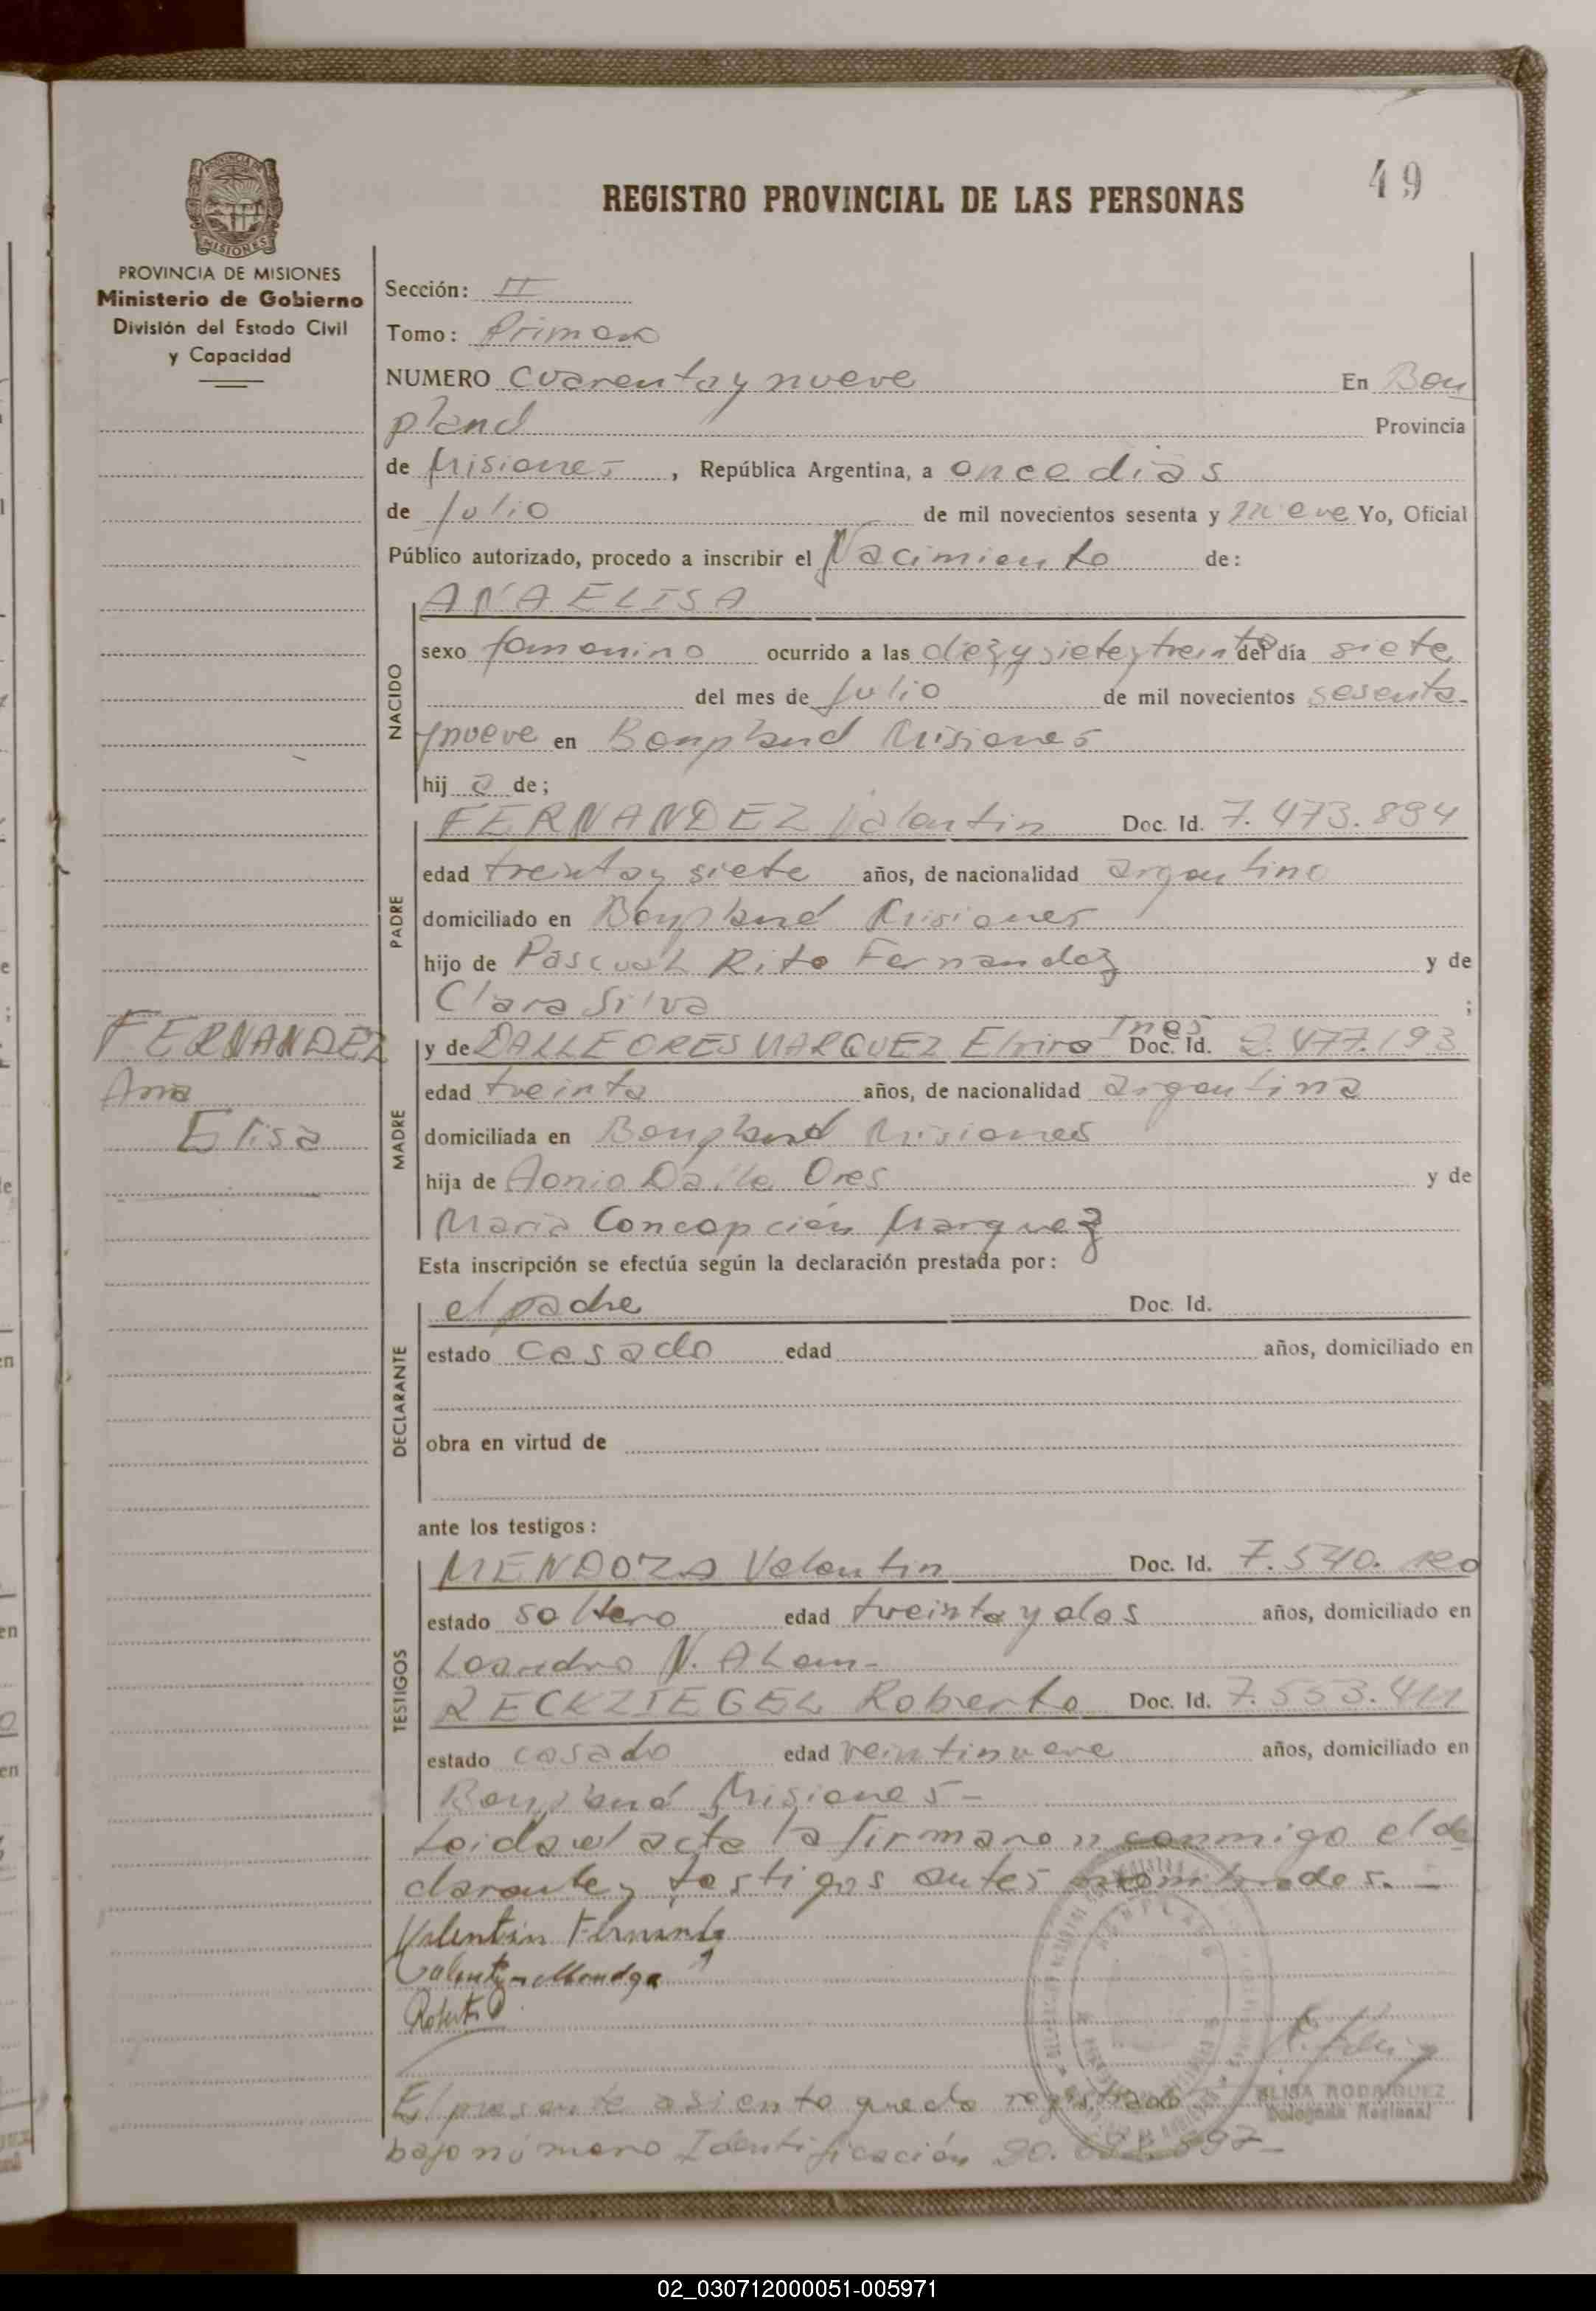 49
REGISTRO PROVINCIAL DE LAS PERSONAS
PROVINCIA DE MISIONES
Ministerio de Gobierno
División del Estado Civil
y Capacidad
Sección: II
Tomo: Primero
NUMERO cuarenta y nueve En Bon
pland Provincia
de Misiones, República Argentina, a once dias
de Julio de mil novecientos sesenta y nueve Yo, Oficial
Público autorizado, procedo a inscribir el Nacimiento de:
NACIDO
ANA ELISA
sexo femenino ocurrido a las diez y siete y treinta del día siete
del mes de Julio de mil novecientos sesenta
y nueve en Bonpland Misiones
hij a de;
PADRE
FERNANDEZ Valentin Doc. Id. 7.473.894
edad treinta y siete años, de nacionalidad argentino
domiciliado en Bonpland Misiones
hijo de Pascual Rito Fernandez y de
Clara Silva ;
FERNANDEZ
Ana
Elisa
MADRE
y de DALLE ORES MARQUEZ Elvira Ines Doc. Id. 2.477.193
edad treinta años, de nacionalidad argentina
domiciliada en Bonpland Misiones
hija de Dalle Ores y de
Maria Concepción Marquez
Esta inscripción se efectúa según la declaración prestada por:
DECLARANTE
el padre Doc. Id.
estado casado edad años, domiciliado en
obra en virtud de
ante los testigos:
TESTIGOS
MENDOZA Valentin Doc. Id. 7.540.
estado soltero edad treinta y dos años, domiciliado en
Leandro N. Alem-
RECKZIEGEL Roberto Doc. Id. 7.553.411
estado casado edad veintinueve años, domiciliado en
Bonpland Misiones-
Leida el acta la firmaron conmigo el de
clarante y testigos antes nombrados.-
Valentin Fernandez
Valentin Mendoza
Roberto
ELISA RODRIGUEZ
Delegada Regional
El presente asiento queda registrado
bajo número Identificación 20.
02_030712000051-005971